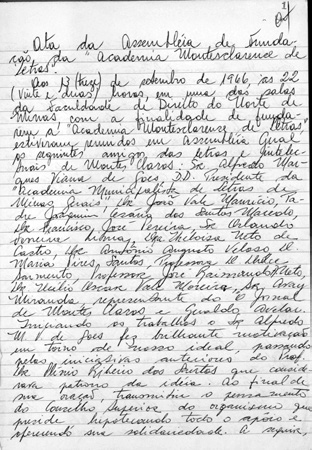 1
Ata da Assembléia de funda-
ção da "Academia Montesclarence de
Letras"
Aos 13 (treze) de setembro de 1966, às 22
(vinte e duas) horas, em uma das salas
da Faculdade de Direito do Norte de
Minas, com a finalidade de funda-
rem a "Academia Montesclarense de Letras"
estiveram reunidos em Assembléia Geral
os seguintes amigos das letras e intelec-
tuais de Montes Claros: Sr. Alfredo Mar-
ques Viana de Goes, D.D. Presidente da
"Academia Municipalista de Letras de
Minas Gerais", Dr. João Vale Mauricio, Pa-
dre Joaquim Cesario dos Santos Macedo,
Dr. Francisco José Pereira, Sr. Orlando
Ferreira Lima, Dra. Heloisa Neto de
Castro, Dr. Antônio Augusto Veloso, D.
Maria Pires Santos, Professora D. Dulce
Sarmento, Professor José Raimundo Neto,
Dr. Hélio Oscar Vale Moreira, Sr.
Miranda, representante do "O Jornal
de Montes Claros" e Geraldo Avelar.
Iniciando os trabalhos o Sr. Alfredo
M. V. de Goes fez brilhante motivação
em torno de nosso ideal, passando
pelas incursões anteriores do Prof.
Dr. Plínio Ribeiro dos Santos que conside-
rava patrono da ideia. Ao final de
sua oração, transmitiu o pensamento
do Conselho Superior do organismo que
preside hipotecando todo o apoio e
oferecendo sua solidariedade. A seguir,